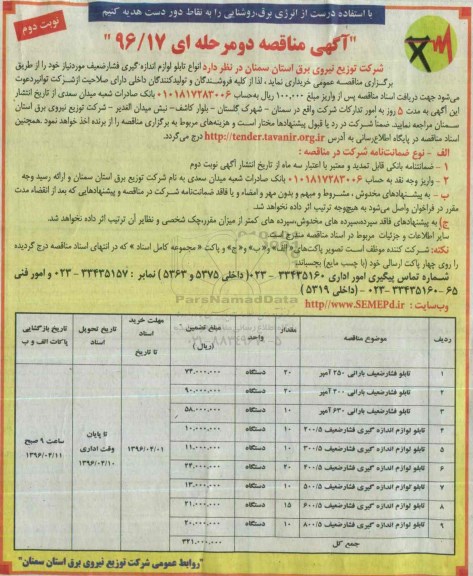 با استفاده درست از انرژی برق، روشنایی را به نقاط دور دست هدیه کنیم
نوبت دوم
"آگهی مناقصه دومرحله ای ۹۶/۱۷"
شرکت توزیع نیروی برق استان سمنان در نظر دارد انواع تابلو لوازم اندازه گیری فشارضعیف موردنیاز خود را از طریق
برگزاری مناقصه عمومی خریداری نماید، لذا از کلیه فروشندگان و تولیدکنندگان داخلی دارای صلاحیت ازشرکت توانیردعوت
می‌شود جهت دریافت اسناد مناقصه پس از واریز مبلغ ۱۰۰,۰۰۰ ریال به‌حساب ۰۱۰۱۸۱۷۲۸۳۰۰۶ بانک صادرات شعبه میدان سعدی از تاریخ انتشار
این آگهی به مدت ۵ روز به امور تدارکات شرکت واقع در سمنان - شهرک گلستان - بلوار کاشف- نبش میدان الغدیر - شرکت توزیع نیروی برق استان
سمنان مراجعه نمایید. ضمناً شرکت در رد یا قبول پیشنهادها مختار است و هزینه‌های مربوط به برگزاری مناقصه را از برنده اخذ خواهد نمود. همچنین
اسناد مناقصه در پایگاه اطلاع‌رسانی به آدرس http://tender.tavanir.org.ir درج می‌گردد.
الف - نوع ضمانت‌نامه شرکت در مناقصه :
۱ - ضمانتنامه بانکی قابل تمدید و معتبر با اعتبار سه ماه از تاریخ انتشار آگهی نوبت دوم
۲ - واریز وجه نقد به حساب ۰۱۰۱۸۱۷۲۸۳۰۰۶ بانک صادرات شعبه میدان سعدی به نام شرکت توزیع برق استان سمنان و ارائه رسید وجه
ب - به پیشنهادهای مخدوش ، مشروط و مبهم و بدون مهر و امضاء و یا فاقد ضمانت‌نامه شرکت در مناقصه و پیشنهادهایی که بعد از انقضاء مدت
مقرر در فراخوان واصل می‌شود به هیچوجه ترتیب اثر داده نخواهد شد.
ج) به پیشنهادهای فاقد سپرده،سپرده های مخدوش،سپرده های کمتر از میزان مقرر،چک شخصی و نظایر آن ترتیب اثر داده نخواهد شد.
سایر اطلاعات و جزئیات مربوط در اسناد مناقصه مندرج است.
نکته: شرکت کننده موظف است تصویر پاکت‌های« الف» و«ب» و«ج» و پاکت « مجموعه کامل اسناد » که در انتهای اسناد مناقصه درج گردیده
را روی چهار پاکت ارسالی خود (با چسب مایع) بچسباند.
شماره تماس پیگیری امور اداری ۳۳۴۳۵۱۶۰-۰۲۳ (داخلی ۵۳۷۵ و ۵۳۶۳) نمابر : ۳۳۴۳۵۱۵۷-۰۲۳ و امور فنی
۶۵-۳۳۴۳۵۱۶۰-۰۲۳ (داخلی ۵۳۱۹)
وب‌سایت : http//www.SEMEPd.ir
ParsNamadData
ردیف | موضوع مناقصه | مقدار | واحد | مبلغ تضمین (ریال) | مهلت خرید اسناد تا تاریخ | تاریخ تحویل اسناد | تاریخ بازگشایی پاکات الف و ب
۱ | تابلو فشارضعیف بارانی ۲۵۰ آمپر | ۲۰ | دستگاه | ۷۴.۰۰۰.۰۰۰
۲ | تابلو فشارضعیف بارانی ۴۰۰ آمپر | ۲۰ | دستگاه | ۹۰.۰۰۰.۰۰۰
۳ | تابلو فشارضعیف بارانی ۶۳۰ آمپر | ۱۰ | دستگاه | ۵۸.۰۰۰.۰۰۰
۴ | تابلو لوازم اندازه گیری فشارضعیف ۲۰۰/۵ | ۱۰ | دستگاه | ۱۰.۰۰۰.۰۰۰
۵ | تابلو لوازم اندازه گیری فشارضعیف ۳۰۰/۵ | ۱۰ | دستگاه | ۱۱.۰۰۰.۰۰۰
۶ | تابلو لوازم اندازه گیری فشارضعیف ۴۰۰/۵ | ۲۰ | دستگاه | ۲۴.۰۰۰.۰۰۰
۷ | تابلو لوازم اندازه گیری فشارضعیف ۵۰۰/۵ | ۱۰ | دستگاه | ۱۳.۰۰۰.۰۰۰
۸ | تابلو لوازم اندازه گیری فشارضعیف ۶۰۰/۵ | ۱۵ | دستگاه | ۲۱.۰۰۰.۰۰۰
۹ | تابلو لوازم اندازه گیری فشارضعیف ۸۰۰/۵ | ۱۰ | دستگاه | ۲۰.۰۰۰.۰۰۰
۱۳۹۶/۰۴/۰۱ | تا پایان وقت اداری ۱۳۹۶/۰۴/۱۰ | ساعت ۹ صبح ۱۳۹۶/۰۴/۱۱
جمع کل | ۳۲۱.۰۰۰.۰۰۰
"روابط عمومی شرکت توزیع نیروی برق استان سمنان"